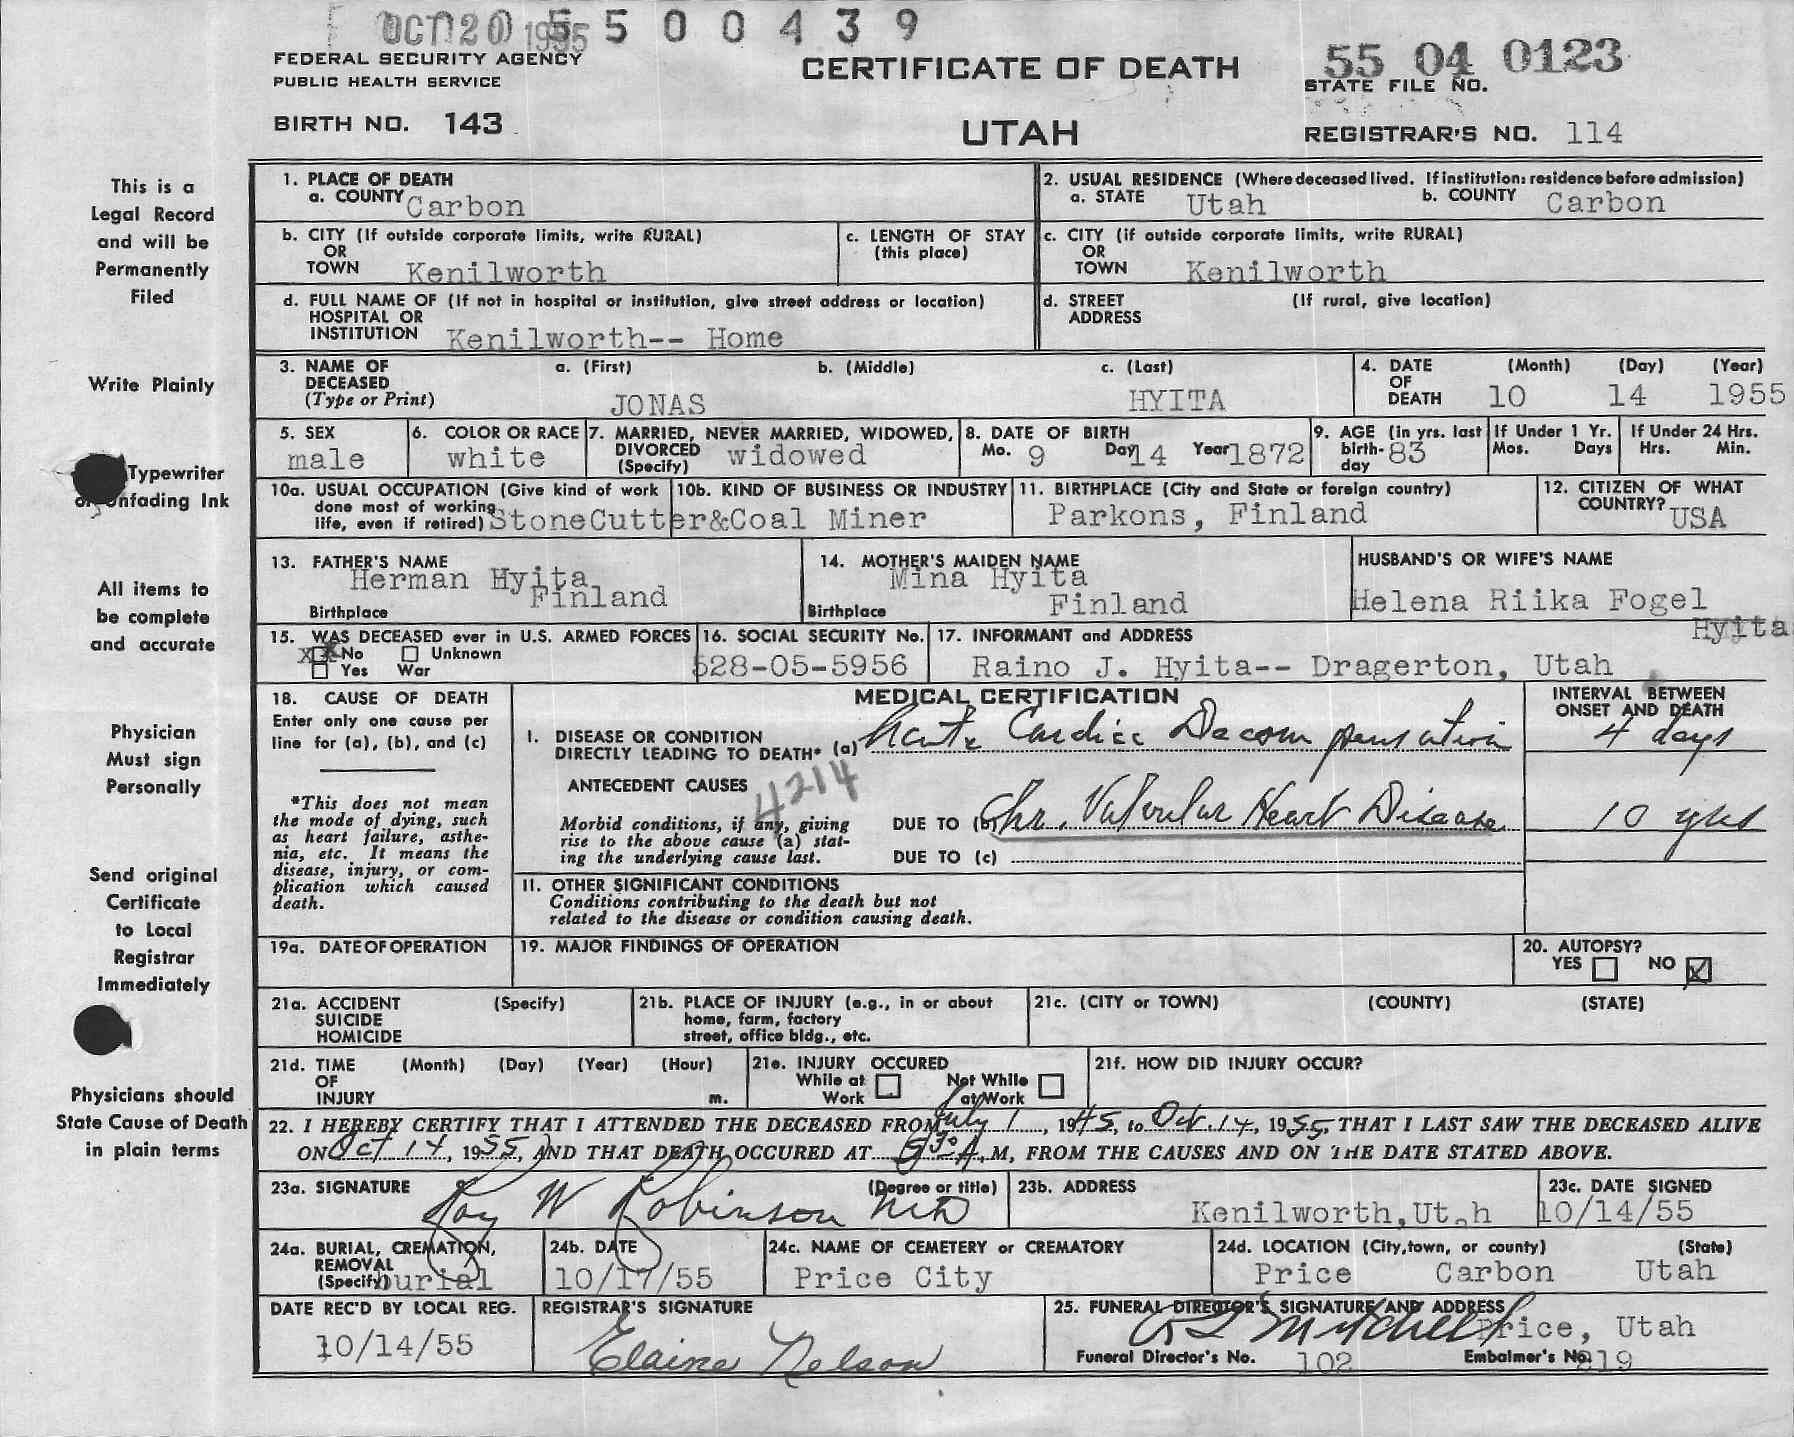 OCT 20 1955 5 5 0 0 4 3 9
FEDERAL SECURITY AGENCY
PUBLIC HEALTH SERVICE
CERTIFICATE OF DEATH
55 04 0123
STATE FILE NO.
BIRTH NO. 143
UTAH
REGISTRAR'S NO. 114
This is a
Legal Record
and will be
Permanently
Filed
Write Plainly
Typewriter
or Unfading Ink
All items to
be complete
and accurate
Physician
Must sign
Personally
Send original
Certificate
to Local
Registrar
Immediately
Physicians should
State Cause of Death
in plain terms
1. PLACE OF DEATH
a. COUNTY Carbon
2. USUAL RESIDENCE (Where deceased lived. If institution: residence before admission)
a. STATE Utah b. COUNTY Carbon
b. CITY (If outside corporate limits, write RURAL)
OR
TOWN Kenilworth
c. LENGTH OF STAY
(this place)
c. CITY (if outside corporate limits, write RURAL)
OR
TOWN Kenilworth
d. FULL NAME OF (If not in hospital or institution, give street address or location)
HOSPITAL OR
INSTITUTION Kenilworth-- Home
d. STREET (If rural, give location)
ADDRESS
3. NAME OF a. (First) b. (Middle) c. (Last)
DECEASED
(Type or Print) JONAS HYITA
4. DATE (Month) (Day) (Year)
OF
DEATH 10 14 1955
5. SEX
male
6. COLOR OR RACE
white
7. MARRIED, NEVER MARRIED, WIDOWED,
DIVORCED
(Specify) widowed
8. DATE OF BIRTH
Mo. 9 Day 14 Year 1872
9. AGE (in yrs. last
birth-
day 83
If Under 1 Yr.
Mos. Days
If Under 24 Hrs.
Hrs. Min.
10a. USUAL OCCUPATION (Give kind of work
done most of working
life, even if retired) StoneCutter&Coal Miner
10b. KIND OF BUSINESS OR INDUSTRY
11. BIRTHPLACE (City and State or foreign country)
Parkons, Finland
12. CITIZEN OF WHAT
COUNTRY? USA
13. FATHER'S NAME
Herman Hyita
Finland
Birthplace
14. MOTHER'S MAIDEN NAME
Mina Hyita
Birthplace Finland
HUSBAND'S OR WIFE'S NAME
Helena Riika Fogel
Hyita
15. WAS DECEASED ever in U.S. ARMED FORCES
X No Unknown
Yes War
16. SOCIAL SECURITY No.
528-05-5956
17. INFORMANT and ADDRESS
Raino J. Hyita-- Dragerton, Utah
18. CAUSE OF DEATH
Enter only one cause per
line for (a), (b), and (c)
*This does not mean
the mode of dying, such
as heart failure, asthe-
nia, etc. It means the
disease, injury, or com-
plication which caused
death.
MEDICAL CERTIFICATION
INTERVAL BETWEEN
ONSET AND DEATH
I. DISEASE OR CONDITION
DIRECTLY LEADING TO DEATH* (a) Acute Cardiac Decompensation 4 days
ANTECEDENT CAUSES
4214
Morbid conditions, if any, giving
rise to the above cause (a) stat-
ing the underlying cause last.
DUE TO (b) Chr. Valvular Heart Disease 10 yrs
DUE TO (c)
II. OTHER SIGNIFICANT CONDITIONS
Conditions contributing to the death but not
related to the disease or condition causing death.
19a. DATE OF OPERATION
19. MAJOR FINDINGS OF OPERATION
20. AUTOPSY?
YES NO X
21a. ACCIDENT (Specify)
SUICIDE
HOMICIDE
21b. PLACE OF INJURY (e.g., in or about
home, farm, factory
street, office bldg., etc.
21c. (CITY or TOWN) (COUNTY) (STATE)
21d. TIME (Month) (Day) (Year) (Hour)
OF
INJURY m.
21e. INJURY OCCURED
While at Work Not While at Work
21f. HOW DID INJURY OCCUR?
22. I HEREBY CERTIFY THAT I ATTENDED THE DECEASED FROM July 1, 1945, to Oct. 14, 1955, THAT I LAST SAW THE DECEASED ALIVE
ON Oct 14, 1955, AND THAT DEATH OCCURED AT 5:30 A.M, FROM THE CAUSES AND ON THE DATE STATED ABOVE.
23a. SIGNATURE (Degree or title)
Roy W Robinson MD
23b. ADDRESS
Kenilworth,Ut h
23c. DATE SIGNED
10/14/55
24a. BURIAL, CREMATION,
REMOVAL
(Specify) burial
24b. DATE
10/17/55
24c. NAME OF CEMETERY or CREMATORY
Price City
24d. LOCATION (City, town, or county) (State)
Price Carbon Utah
DATE REC'D BY LOCAL REG.
10/14/55
REGISTRAR'S SIGNATURE
Elaine Nelson
25. FUNERAL DIRECTOR'S SIGNATURE AND ADDRESS
Mitchell Price, Utah
Funeral Director's No. 102 Embalmer's No. 819